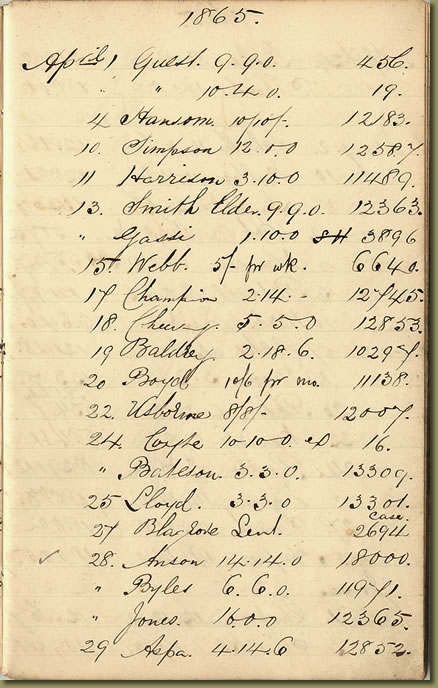 1865.
April 1 Guest. 9.9.0. 456.
" " 10.4.0. 19.
4 Hansom 10/10/- 12183.
10. Simpson 12.0.0 12587.
11 Harrison 3.10.0 11489.
13. Smith Elder. 9.9.0. 12363.
" Gassi 1.10.0 3896
15. Webb. 5/- for wk. 6640.
17 Champion 2.14.- 12745.
18. 5.5.0 12853.
19 Baldrey 2.18.6. 10297.
20 Boyd 10/6 for mo. 11138.
22. Usborne 8/8/- 12007.
24. Coyte 10.10.0. ex 16.
" Bateson. 3.3.0. 13309.
25 Lloyd. 3.3.0 13301.
case.
27 Blagrove Lent. 2694
28. Anson 14.14.0 18000.
" Byles 6.6.0. 11971.
" Jones. 16.0.0 12365.
29 Aspa. 4.14.6 12852.